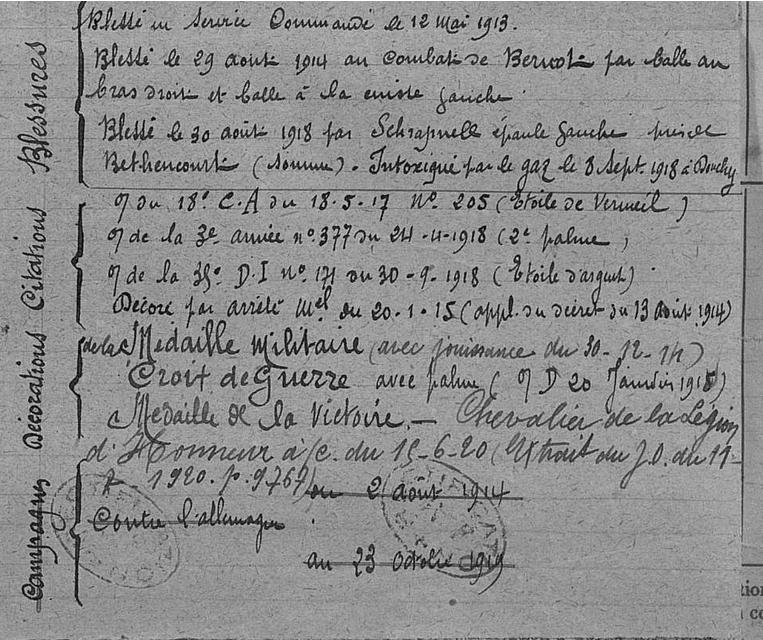 Blessures
Blessé en service Commandé le 12 Mai 1913.
Blessé le 29 août 1914 au combat de Bernot par balle au
bras droit et balle à la cuisse gauche
Blessé le 30 août 1918 par Schrapnell épaule gauche près de
Bethencourt (Somme). Intoxiqué par le gaz le 8 Sept. 1918 à Douchy
Campagnes Décorations Citations
du 18e C.A du 18.5.17 N° 205 (Etoile de Vermeil)
de la 3e armée n° 377 du 1918 (2e palme)
de la D.I n° 171 du 30-9.1918 (Etoile d'argent)
Décoré par arrêté Mel du 20.1.15 (appl. du décret du 13 Août 1914)
de la Medaille Militaire (avec jouissance du 30-12-14)
Croix de Guerre avec palme ( D 20 Janvier 1915)
Medaille de la Victoire. — Chevalier de la Légion
d'Honneur à/c. du 15-6-20 (Extrait du J.O. du 11-
1920. p. 9767)
du 2 août 1914
Contre l'allemagne
au 23 Octobre 1919